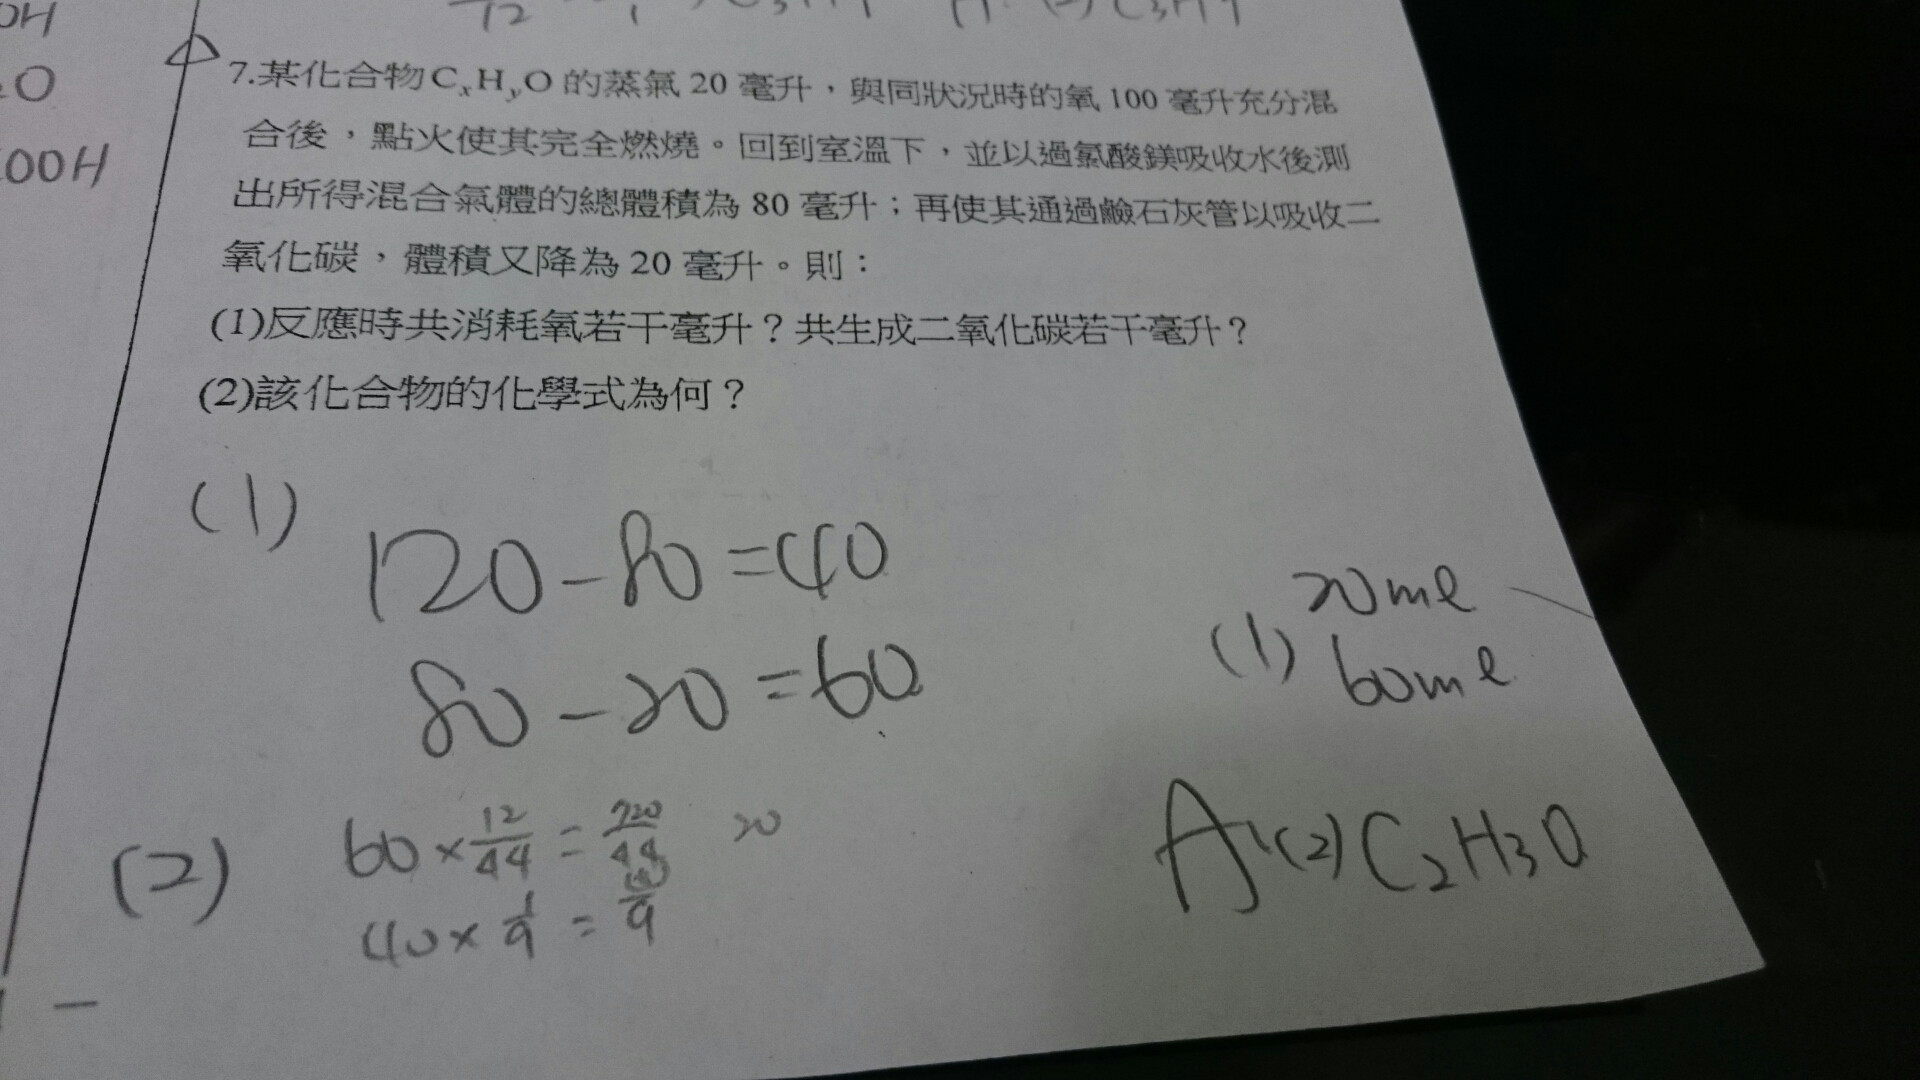 OH
O
COOH
7.某化合物CxHyO的蒸氣 20 毫升，與同狀況時的氧 100 毫升充分混
合後，點火使其完全燃燒。回到室溫下，並以過氯酸鎂吸收水後測
出所得混合氣體的總體積為 80 毫升；再使其通過鹼石灰管以吸收二
氧化碳，體積又降為 20 毫升。則：
(1)反應時共消耗氧若干毫升？共生成二氧化碳若干毫升？
(2)該化合物的化學式為何？
(1)
120-80=40
80-20=60
(2) 60×12/44=720/44 20
40×1/9=
20ml
(1) 60ml
A:(2) C2H3O